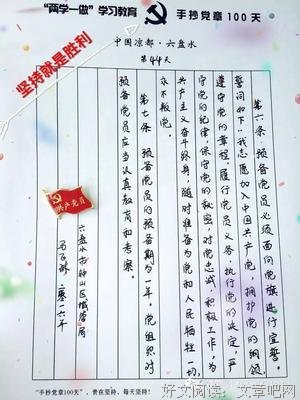 "两学一做"学习教育 手抄党章100天
中国凉都·六盘水
第44天
坚持就是胜利
第六条 预备党员必须面向党旗进行宣誓。
誓词如下:"我志愿加入中国共产党，拥护党的纲领
遵守党的章程，履行党员义务，执行党的决定，严
守党的纪律，保守党的秘密，对党忠诚，积极工作，为
共产主义奋斗终身，随时准备为党和人民牺牲一切，
永不叛党。
第七条 预备党员的预备期为一年。党组织对
预备党员应当认真教育和考察。
六盘水市钟山区城管局
二零一六年
共产党员
"手抄党章100天"，贵在坚持，每天坚持！
好文阅读：文章吧网